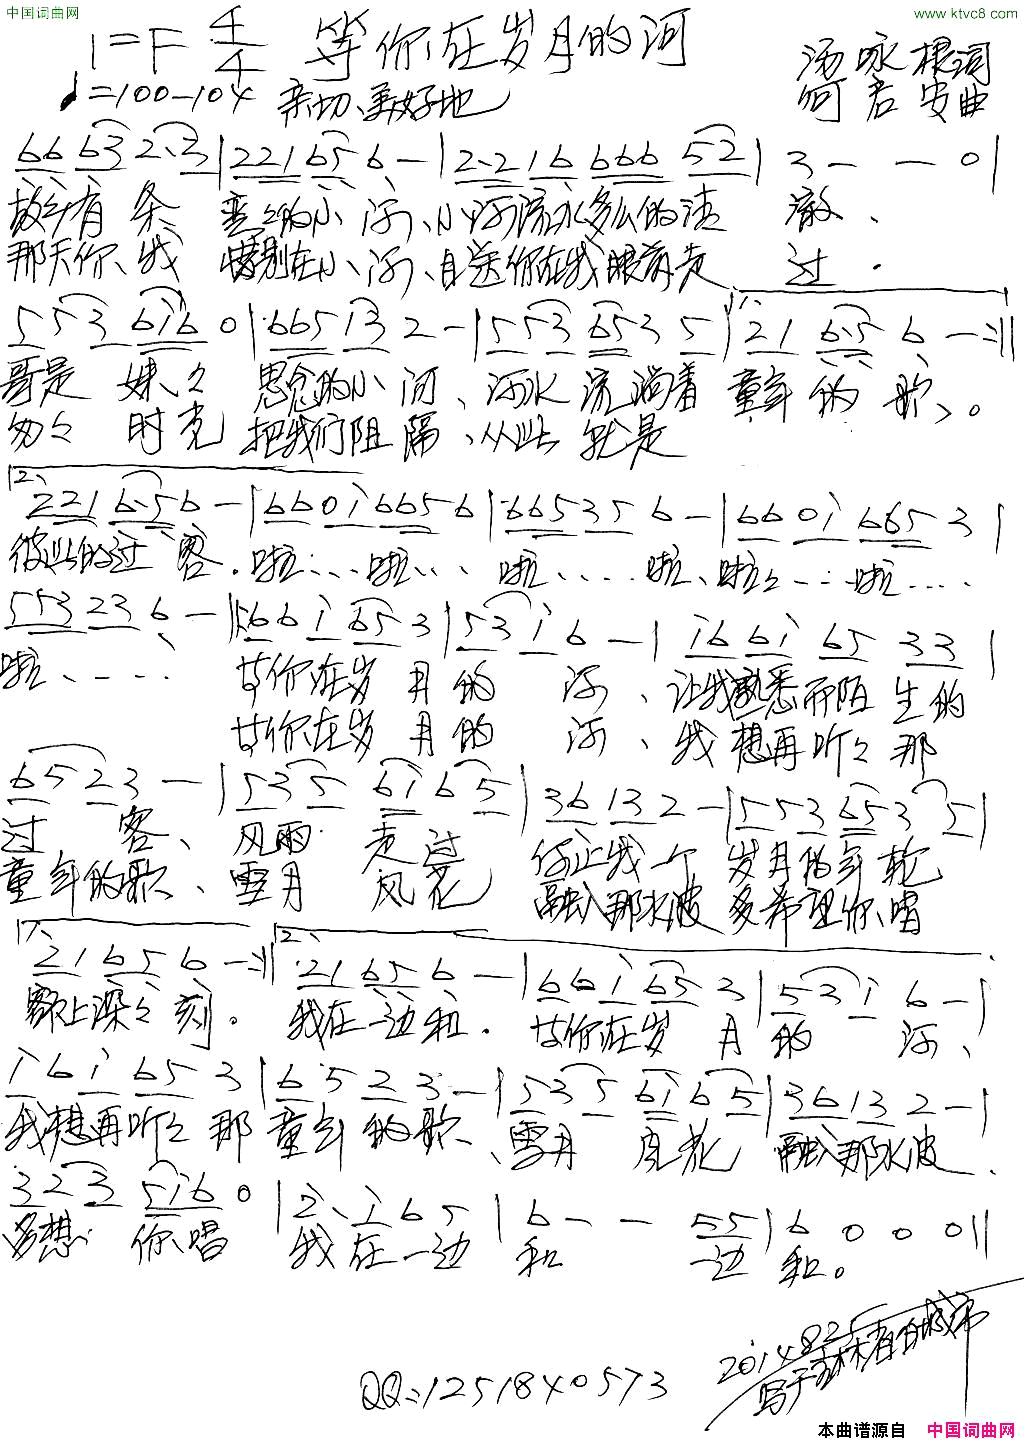 中国词曲网
www.ktvc8.com
1=F 4/4 等你在岁月的河
汤咏根词
♩=100-104 亲切、美好地
何君安曲
66 63 2·3 | 221 65 6 - | 2·2 16 666 52 | 3 - - 0 |
故乡有条 弯々的小河、小河流水多么的清澈、
那天你、我 惜别在小河、目送你在我眼前走过.
5 53 6i6 0 | 665 13 2 - | 5 53 653 5 | 1、 21 6·5 6 - :||
哥是妹々 思念的小河、河水流淌着童年的歌、。
匆々时光 把我们阻隔、从此就是
2、 221 6·5 6 - | 66 0i 665 6 | 66535 6 - | 66 0i 665 3 |
彼此的过客. 啦:...啦... 啦....啦、啦々...啦....
553 23 6 - |: 66 i 65 3 | 53 i 6 - | i6 6i 65 33 |
啦、....  廿你在岁月的河、让我熟悉而陌生的
廿你在岁月的河、我想再听々那
65 23 - | 53 5 6i 65 | 36 13 2 - | 5 53 653 5 |
过客、风雨走过 何让我一个岁月的年轮
童年的歌、雪月风花 融入那水波 多希望你唱
1、 21 65 6 - :|| 2、 21 65 6 - | 66 i 65 3 | 53 i 6 - |
额上深々刻。 我在一边和. 廿你在岁月的河、
i 6 i 65 3 | 6·5 23 - | 53 5 6i 65 | 3613 2 - |
我想再听々那童年的歌、雪月风花 融入那水波.
323 5i6 0 | 2·i 65 | 6 - - 55 | 6 0 0 0 ||
多想你唱 我在一边和 一边和。
2014825
写于森林有的城市
QQ=1251840573
本曲谱源自 中国词曲网